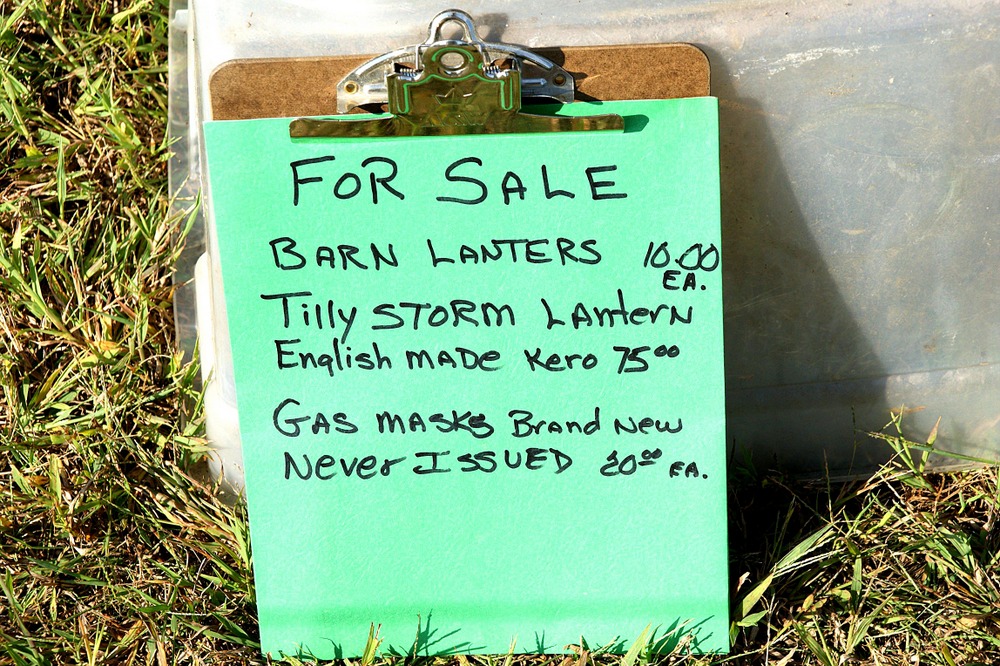 FOR SALE
BARN LANTERS 10.00
EA.
Tilly STORM LANterN
English MADE Kero 75⁰⁰
GAS MASKS Brand New
Never ISSUED 20⁰⁰ EA.